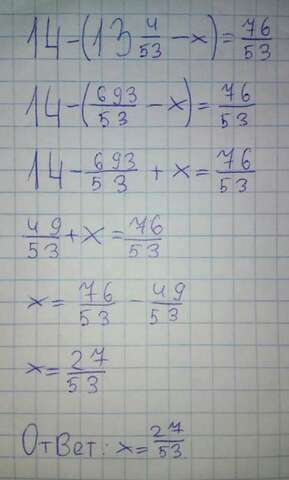 14-(13 4/53 -x)=76/53
14-(693/53 -x)=76/53
14-693/53 +x=76/53
49/53+x=76/53
x=76/53-49/53
x=27/53
Ответ: x=27/53